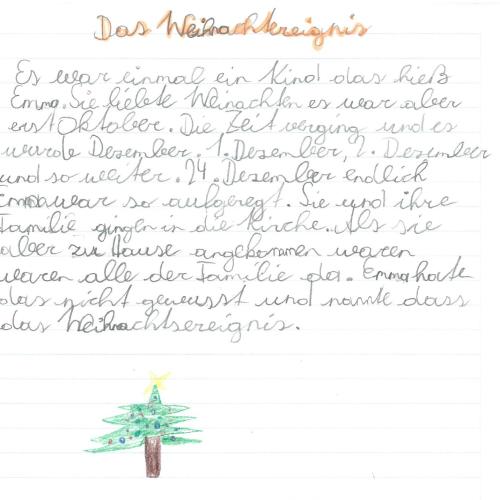 Das Weihnachtsereignis
Es war einmal ein Kind das hieß
Emma. Sie liebte Weinachten es war aber
erst Oktober. Die Zeit verging und es
wurde Desember. 1. Desember, 2. Desember
und so weiter. 24. Desember endlich
Emma war so aufgeregt. Sie und ihre
Familie gingen in die Kirche. Als sie
aber zu Hause angekommen waren
waren alle der Familie da. Emma hate
das nicht gewusst und nannte dass
das Weihnachtsereignis.